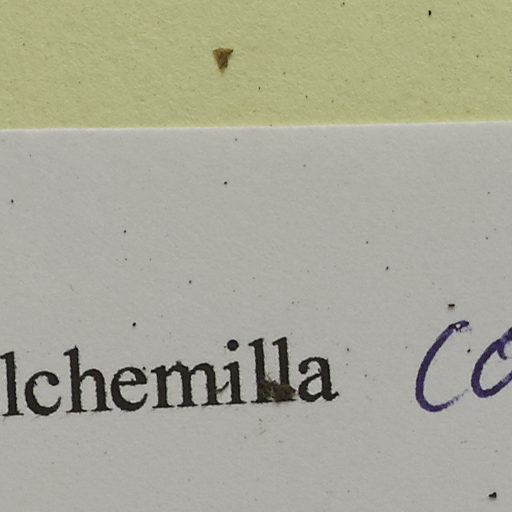 lchemilla co